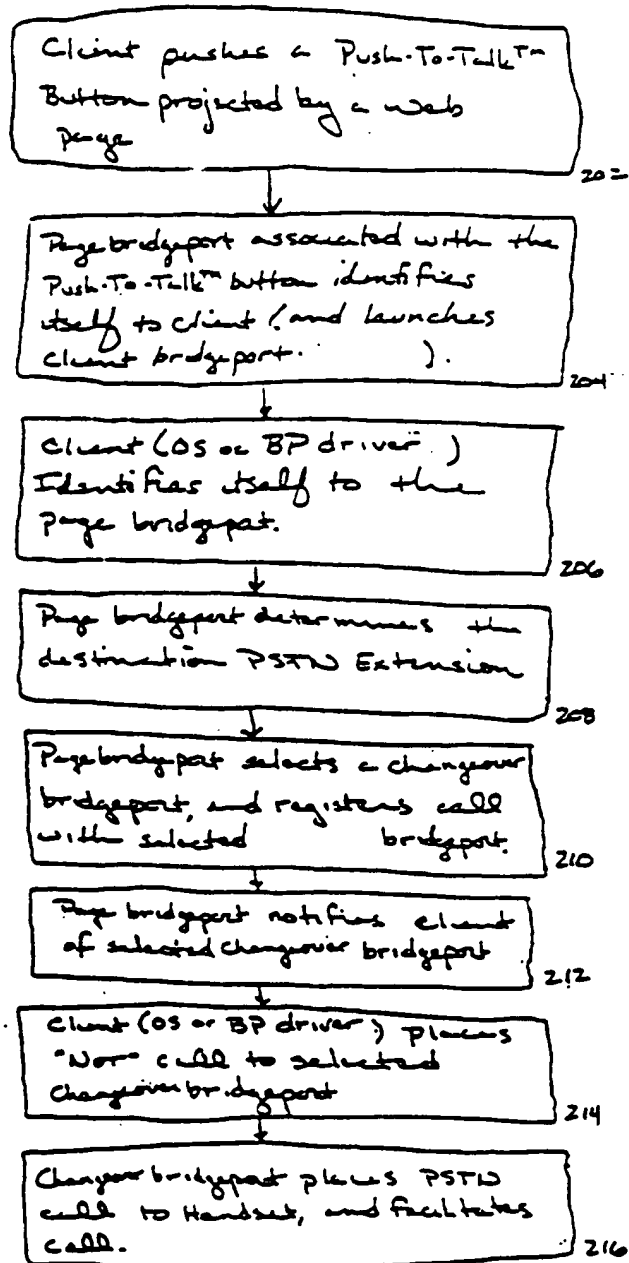 Client pushes a Push-To-Talk™
Button projected by a web
page
202
Page bridgeport associated with the
Push-To-Talk™ button identifies
itself to client (and launches
client bridgeport. ).
204
Client (OS or BP driver )
Identifies itself to the
Page bridgeport.
206
Page bridgeport determines the
destination PSTN Extension
208
Page bridgeport selects a changeover
bridgeport, and registers call
with selected bridgeport.
210
Page bridgeport notifies client
of selected changeover bridgeport
212
Client (OS or BP driver) places
call to selected
Changeover bridgeport
214
Changeover bridgeport places PSTN
call to Handset, and facilitates
call.
216